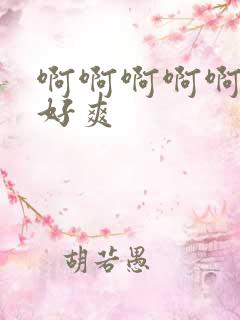 啊啊啊啊啊
好爽
胡若愚